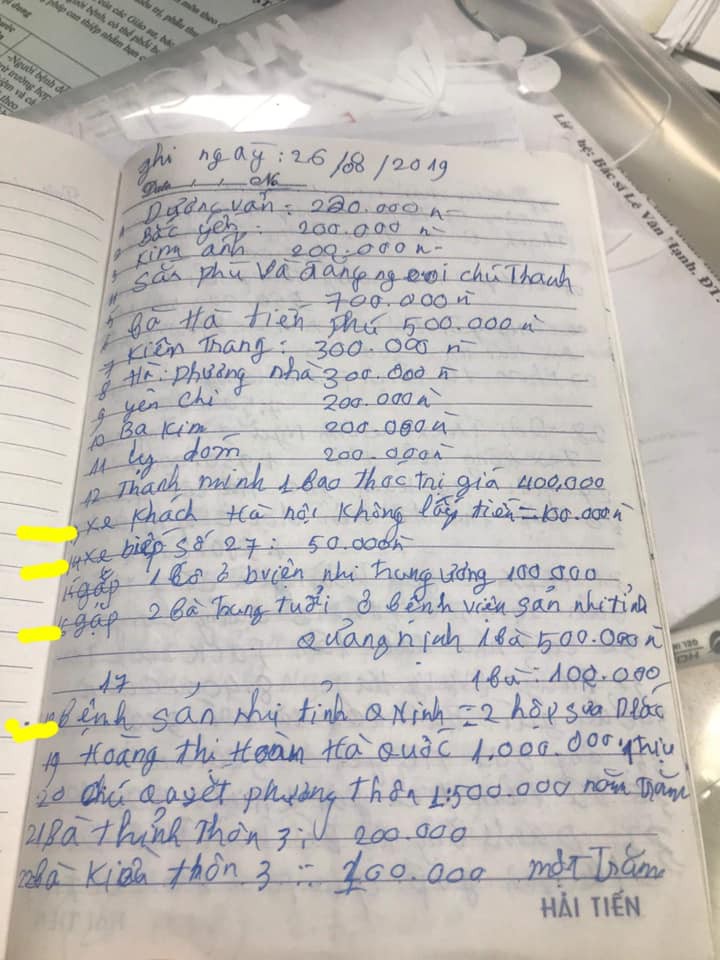 ghi ngày: 26/08/2019
Date No
1 Dương Vân = 220.000 n
2 Bắc yến: 200.000 n
3 Kim anh 200.000 n
4 Sản phụ Và đẳng người chú Thanh
5 700.000 n
6 Bà Hà tiến phú 500.000 n
7 Kiên Trang: 300.000 n
8 Hà: phương nhà 300.000 n
9 yên chi 200.000 n
10 Ba Kim 200.000 n
11 ly dóm 200.000 n
12 Thanh minh 1 Bao thóc trị giá 400,000
xe Khách Hà nội không lấy tiền = 100.000 n
14 xe biếp số 27: 50.000 n
15 gặp 1 bà ở bviện nhi trung ương 100 000
gặp 2 bà Trung tuổi ở bệnh viên sản nhi tỉnh
Quảng ninh 1 bà 500.000 n
17 , , 1 bà: 100.000
Bệnh sản nhi tỉnh Q Ninh = 2 hộp sữa
19 Hoàng thị Hoàn Hà Quốc 1,000.000 1 triệu
20 chú Quyết phương Thôn 1: 500.000 năm Trăm
21 Bà Thỉnh Thôn 3: 200.000
Bà thôn 3 = 100.000 một Trăm
HẢI TIẾN
HẢI TIẾN
bệ: Bác sĩ Lê Văn Hạnh. ĐT
của các Giáo sư, bác